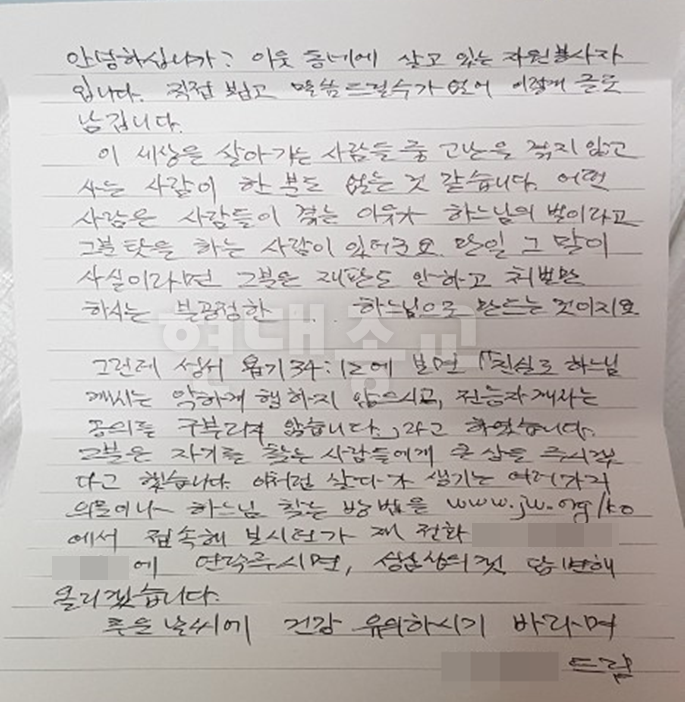 안녕하십니까? 이웃 동네에 살고 있는 자원봉사자
입니다. 직접 뵙고 말씀드릴수가 없어 이렇게 글로
남깁니다.
이 세상을 살아가는 사람들 중 고난을 겪지 않고
사는 사람이 한 분도 없는 것 같습니다. 어떤
사람은 사람들이 겪는 이유가 하느님의 벌이라고
그분 탓을 하는 사람이 있더군요. 만일 그 말이
사실이라면 그분은 재판도 안하고 처벌만
하시는 불공정한 . . . 하느님으로 만드는 것이지요
현대종교
그런데 성서 욥기34:12에 보면 「진실로 하느님
께서는 악하게 행하지 않으시고, 전능자께서는
공의를 구부리지 않습니다.」라고 하였습니다.
그분은 자기를 찾는 사람들에게 큰 상을 주시겠
다고 했습니다. 이처럼 살다가 생기는 여러가지
의문이나 하느님 찾는 방법을 www.jw.org/ko
에서 접속해 보시던가 제 전화
에 연락주시면, 성심성의껏 답변해
올리겠습니다.
추운 날씨에 건강 유의하시기 바라며
드림